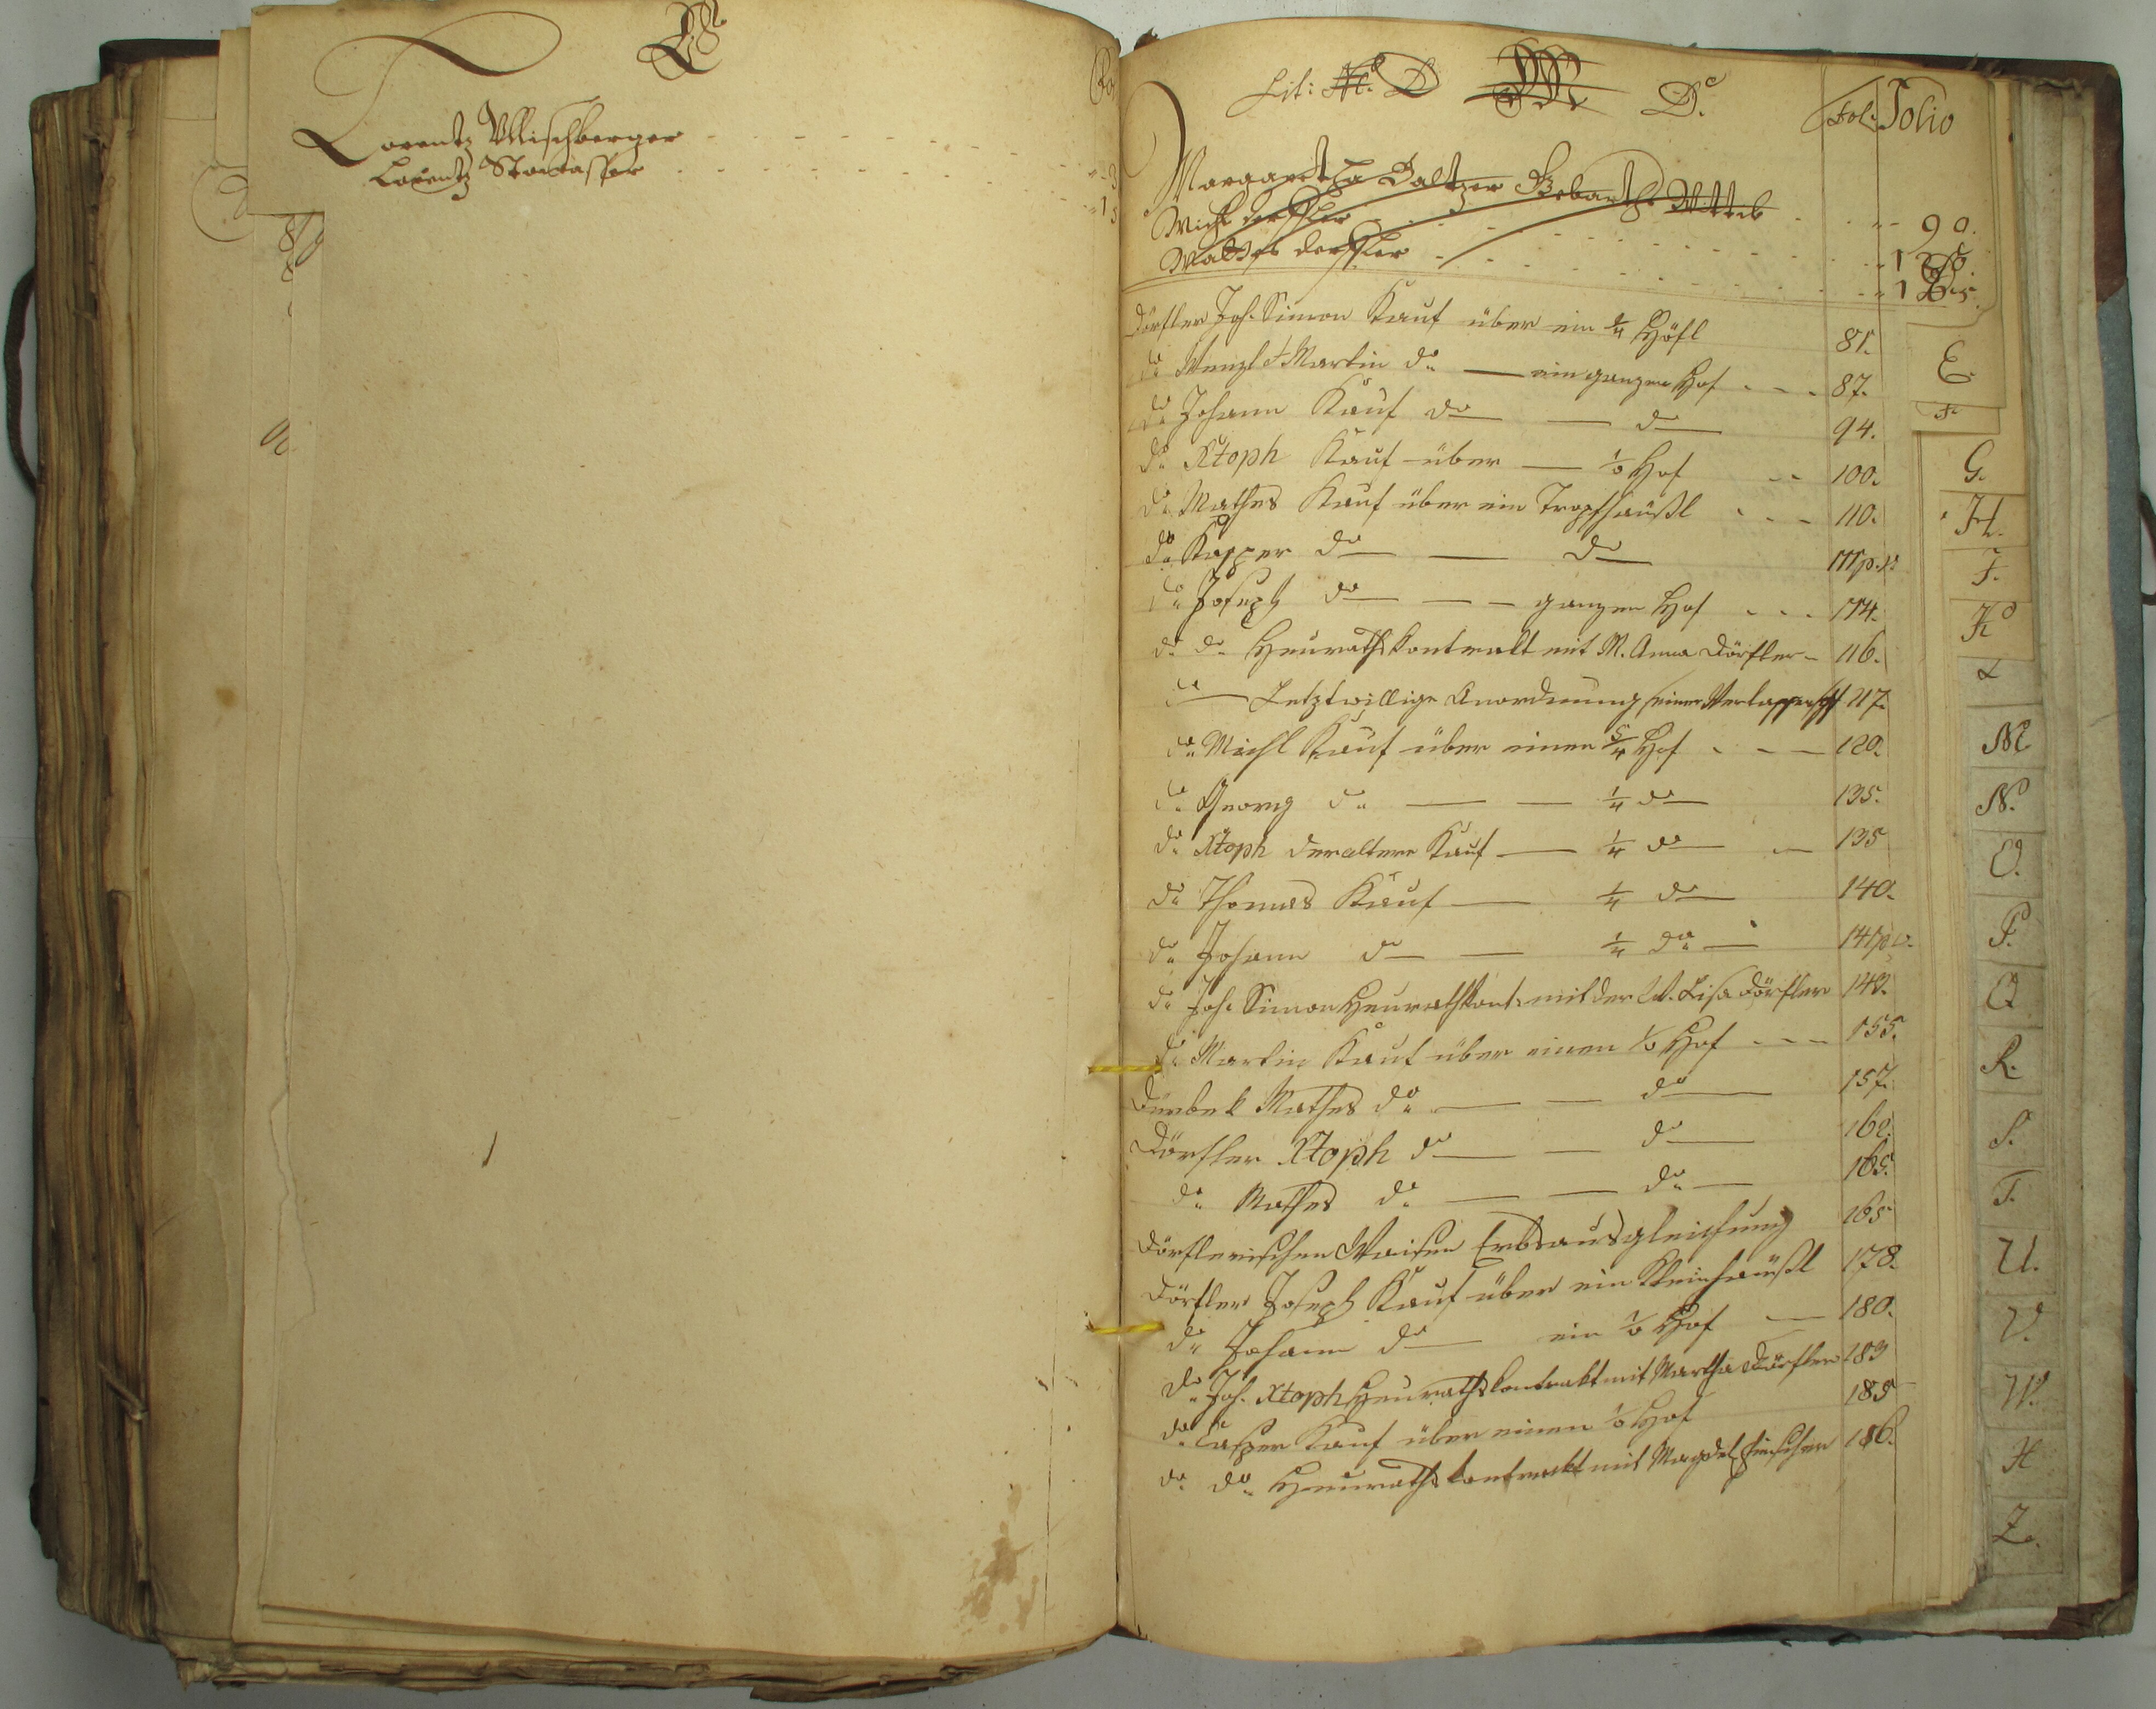 L
Lorentz Wischberger - - - - - - - 3
Lorentz Stowasser - - - - - - - 15
Lit: D D.
Fol: Folio
Margaretha Baltzer Gebarth Wittib - - 90.
Michl Derfler - - - -
Mathes Derfler - - - -
Dörfler Joh. Simon Kauf über ein 3/4 Höfl 81.
do Wenzl & Martin do — ein ganzen Hof - - - 87.
do Johann Kauf do — do 94.
do Xtoph Kauf über — 1/2 Hof - - 100.
do Mathes Kauf über ein Tropfhäußl - - - 110.
do Kasper do — do 111 p.v.
do Joseph do — — ganzen Hof - - - 114.
do do Heuraths Kontrakt mit M. Anna Dörfler - 116.
do — Letztwillige Anordnung seiner Verlassenschft 117.
do Michl Kauf über einen 5/4 Hof - - — 120.
do Georg do — — 1/4 do 135.
do Xtoph der altere Kauf — 1/4 do — 135
do Thomas Kauf — 1/4 do 140.
do Johann do — 1/4 do — 141 p.v.
do Joh. Simon Heuraths Kont: mit der W. Lisa Dörfler 143.
do Martin Kauf über einen 1/2 Hof - - - 155.
Dürbek Mathes do — — do 157.
Dörfler Xtoph do — do 162.
do Mathes do — — do — 165.
Dörflerischen Waisen Erbsausgleichung 165
Dörfler Joseph Kauf über ein Kleinhäußl 178.
do Johann do — ein 1/2 Hof — 180.
do Joh. Xtoph Heuraths Kontrakt mit Martha Dörfler 183
do Casper Kauf über einen 1/2 Hof 185
do do Heuraths Kontrakt mit Magdl. 186.
E.
F.
G.
H.
J.
K
L
M
N.
O.
P.
Q
R.
S.
T.
U.
V.
W.
X
Z.